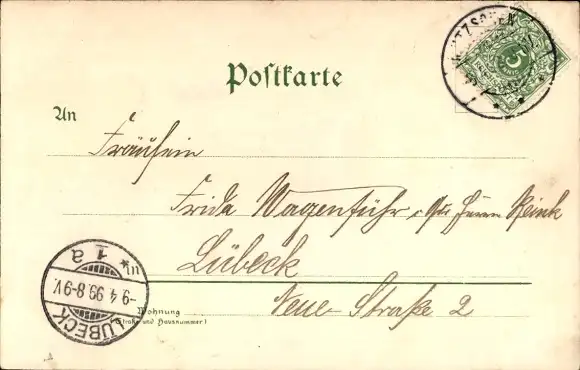 Postkarte
5
An
Fräulein
Frida Wagenführ Herrn Reink
Lübeck
in
Wohnung
(Straße und Hausnummer)
Neue Straße 2
LÜBECK
-9 4 99.8-9V.
* 1 a